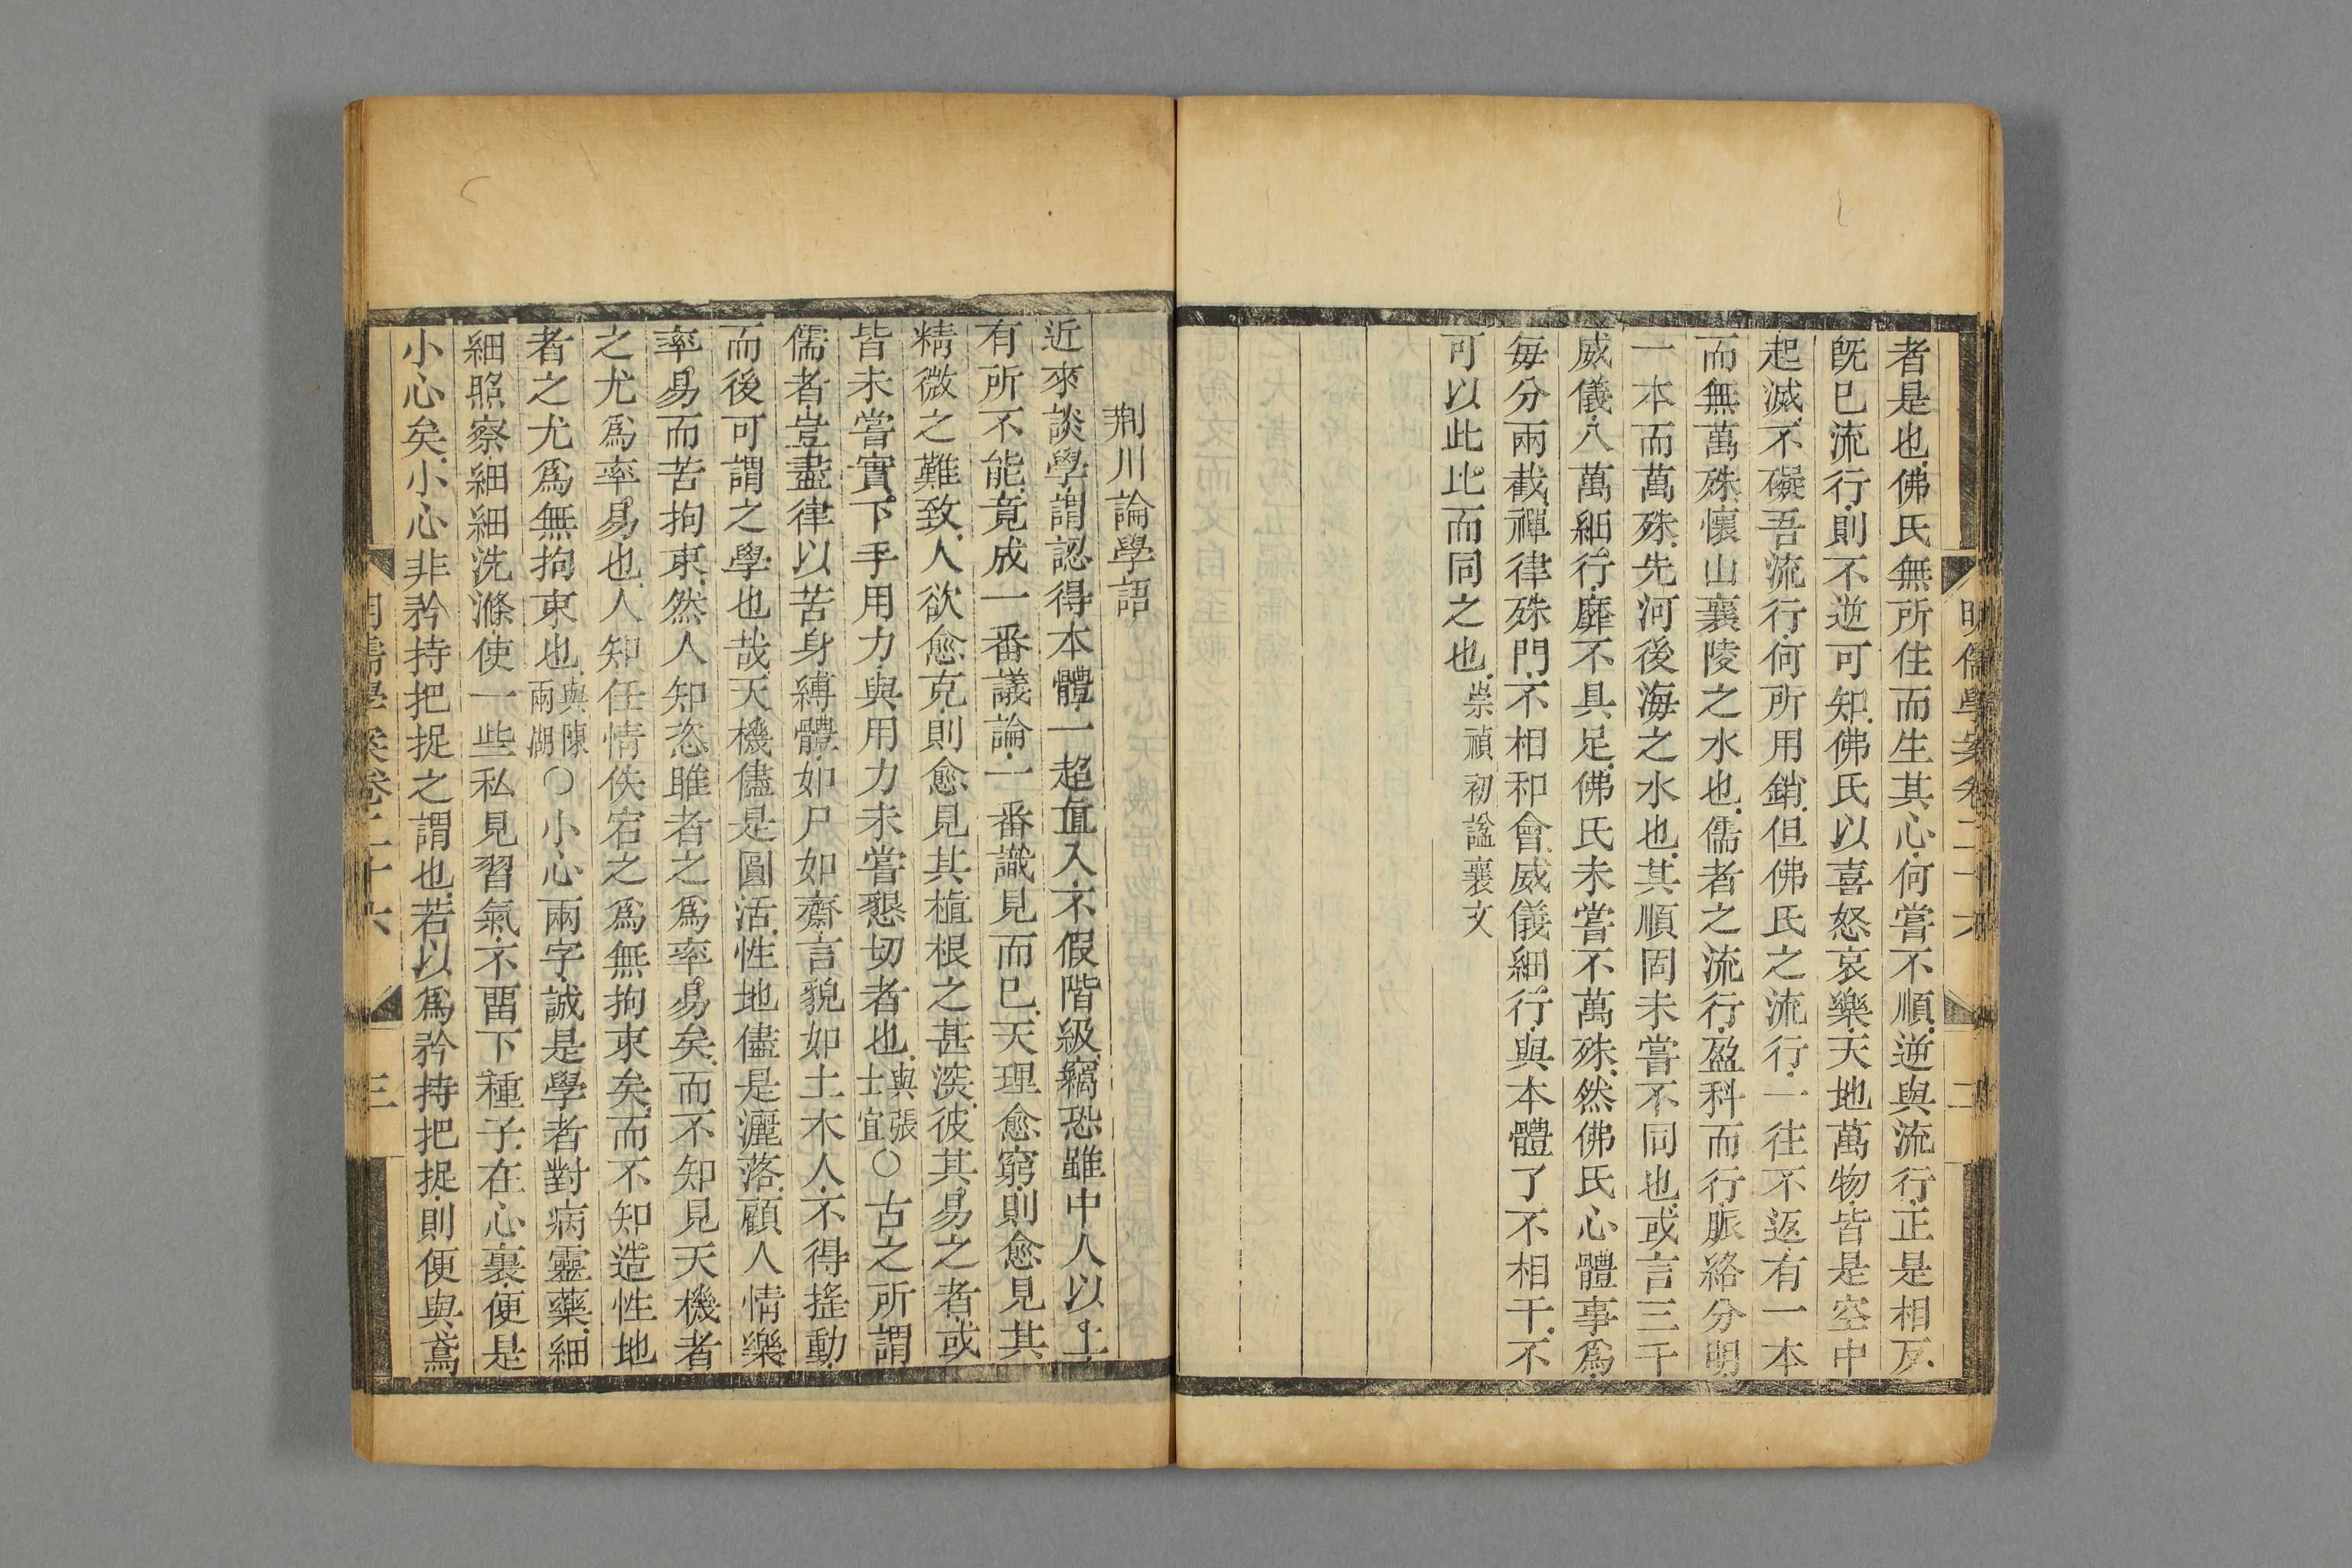 明儒學案卷二十六 二
者是也佛氏無所住而生其心何嘗不順逆與流行正是相反
旣巳流行則不逆可知佛氏以喜怒哀樂天地萬物皆是空中
起滅不礙吾流行何所用銷但佛氏之流行一往不返有一本
而無萬殊懷山襄陵之水也儒者之流行盈科而行脈絡分明
一本而萬殊先河後海之水也其順固未嘗不同也或言三千
威儀八萬細行靡不具足佛氏未嘗不萬殊然佛氏心體事爲
每分兩截禪律殊門不相和會威儀細行與本體了不相干不
可以此比而同之也崇禎初諡襄文
荆川論學語
近來談學謂認得本體一超直入不假階級竊恐雖中人以上
有所不能竟成一番議論一番識見而已天理愈窮則愈見其
精微之難致人欲愈克則愈見其植根之甚深彼其易之者或
皆未嘗實下手用力與用力未嘗懇切者也與張士宜○古之所謂
儒者豈盡律以苦身縛體如尸如齋言貌如土木人不得搖動
而後可謂之學也哉天機儘是圓活性地儘是灑落顧人情樂
率易而苦拘束然人知恣睢者之爲率易矣而不知見天機者
之尤爲率易也人知任情佚宕之爲無拘束矣而不知造性地
者之尤爲無拘束也與陳兩湖○小心兩字誠是學者對病靈藥細
細照察細細洗滌使一些私見習氣不畱下種子在心裏便是
小心矣小心非矜持把捉之謂也若以爲矜持把捉則便與鳶
明儒學案卷二十六 三